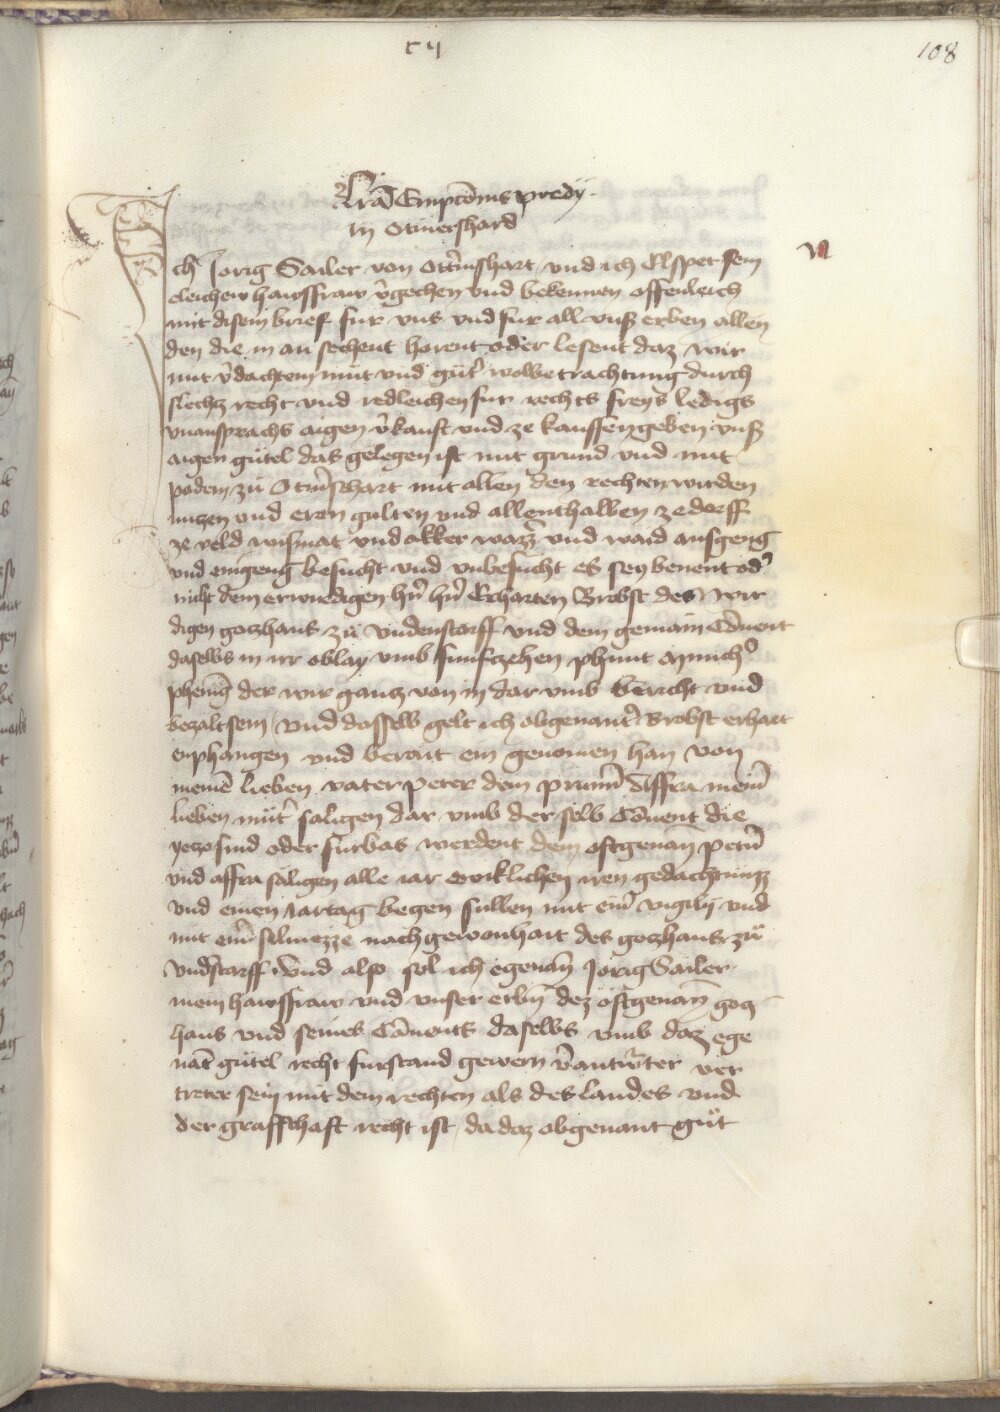 c ij
108
Lrā Empcōnis predij
in Otmershard
vij
Ich Jorig Sailer von Otm̄shart vnd ich Elspet sein
eleichew hawsfraw v̄gechen vnd bekennen offenleich
mit disem brief fur vns vnd fur all vnß erben allen
den die in an sechent horent oder lesent daz wir
mit v̄dachtem mut vnd gut̄ wolbetrachtung durch
slechtz recht vnd redleichen fur rechts freys ledigs
vnansprachs aigen v̄kauft vnd ze kauffen geben vnß
aigen gütel das gelegen ist mit grund vnd mit
podem zu Otm̄shart mit allen den rechten wirden
nutzen vnd eren gulten vnd allenthalben ze dorff
ze veld wismat vnd akker wazz̄ vnd waid ausgeng
vnd eingeng besucht vnd vnbesucht es sey benent od̄
nicht dem erwirdigen hn̄ hn̄ Erharten Brobst des wir
digen gotzhaus zů Vndenstorff vnd dem gemain Cōuent
daselbs in irr oblay vmb funfczehen phunt Munich̄
phenīg der wir gantz von in dar vmb bericht vnd
betzalt sein vnd dasselb gelt ich obgenant̄ Brobst erhart
enphangen vnd berait ein genomen han von
meinē lieben vater Peter dem prunn̄ Affra mein̄
lieben mut̄ saligen dar vmb der selb Cōuent die
yetzo sind oder furbas werdent dem oftgenan̄ petn̄
vnd affra säligen alle iar ewiklichen iren gedachtnuzz
vnd einen iartag begen sullen mit ein̄ vigilij vnd
mit ein̄ selmezze nach gewonhait des gotzhaus zů
Vnd̄starff Vnd also sol ich egenan̄ Jorig Sailer
mein hawsfraw vnd vnser erbn̄ dez oftgenan̄ gotz
haus vnd seines Cōuents daselbs vmb daz ege
nāt gütel recht furstand gewern v̄antw̄ter ver
treter sein mit dem rechten als des landes vnd
der graffschaft recht ist da daz obgenant gůt